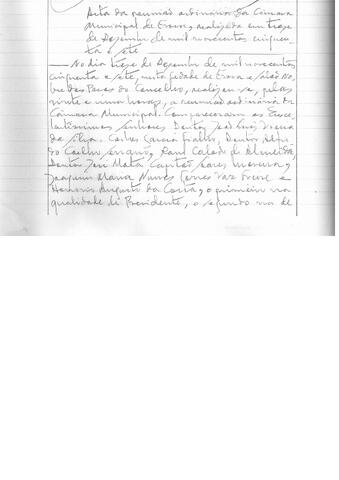 Acta da reunião ordinária da Câmara
Municipal de Évora, realizada em treze
de Dezembro de mil novecentos cinquen-
ta e sete
No dia treze de Dezembro de mil novecentos
cinquenta e sete, nesta cidade de Évora e salão No-
bre dos Paços do Concelho, realizou-se, pelas
vinte e uma horas, a reunião ordinária da
Câmara Municipal. Compareceram os Exce-
lentíssimos senhores Doutor José Luis
da Silva, Carlos Garcia Doutor
Coelho Raul Calado de Almeida
Doutor José Mata Capitão
Joaquim Maria Nunes Torres Vaz Freire e
Honório Augusto da Costa, o primeiro na
qualidade de Presidente, o segundo na de